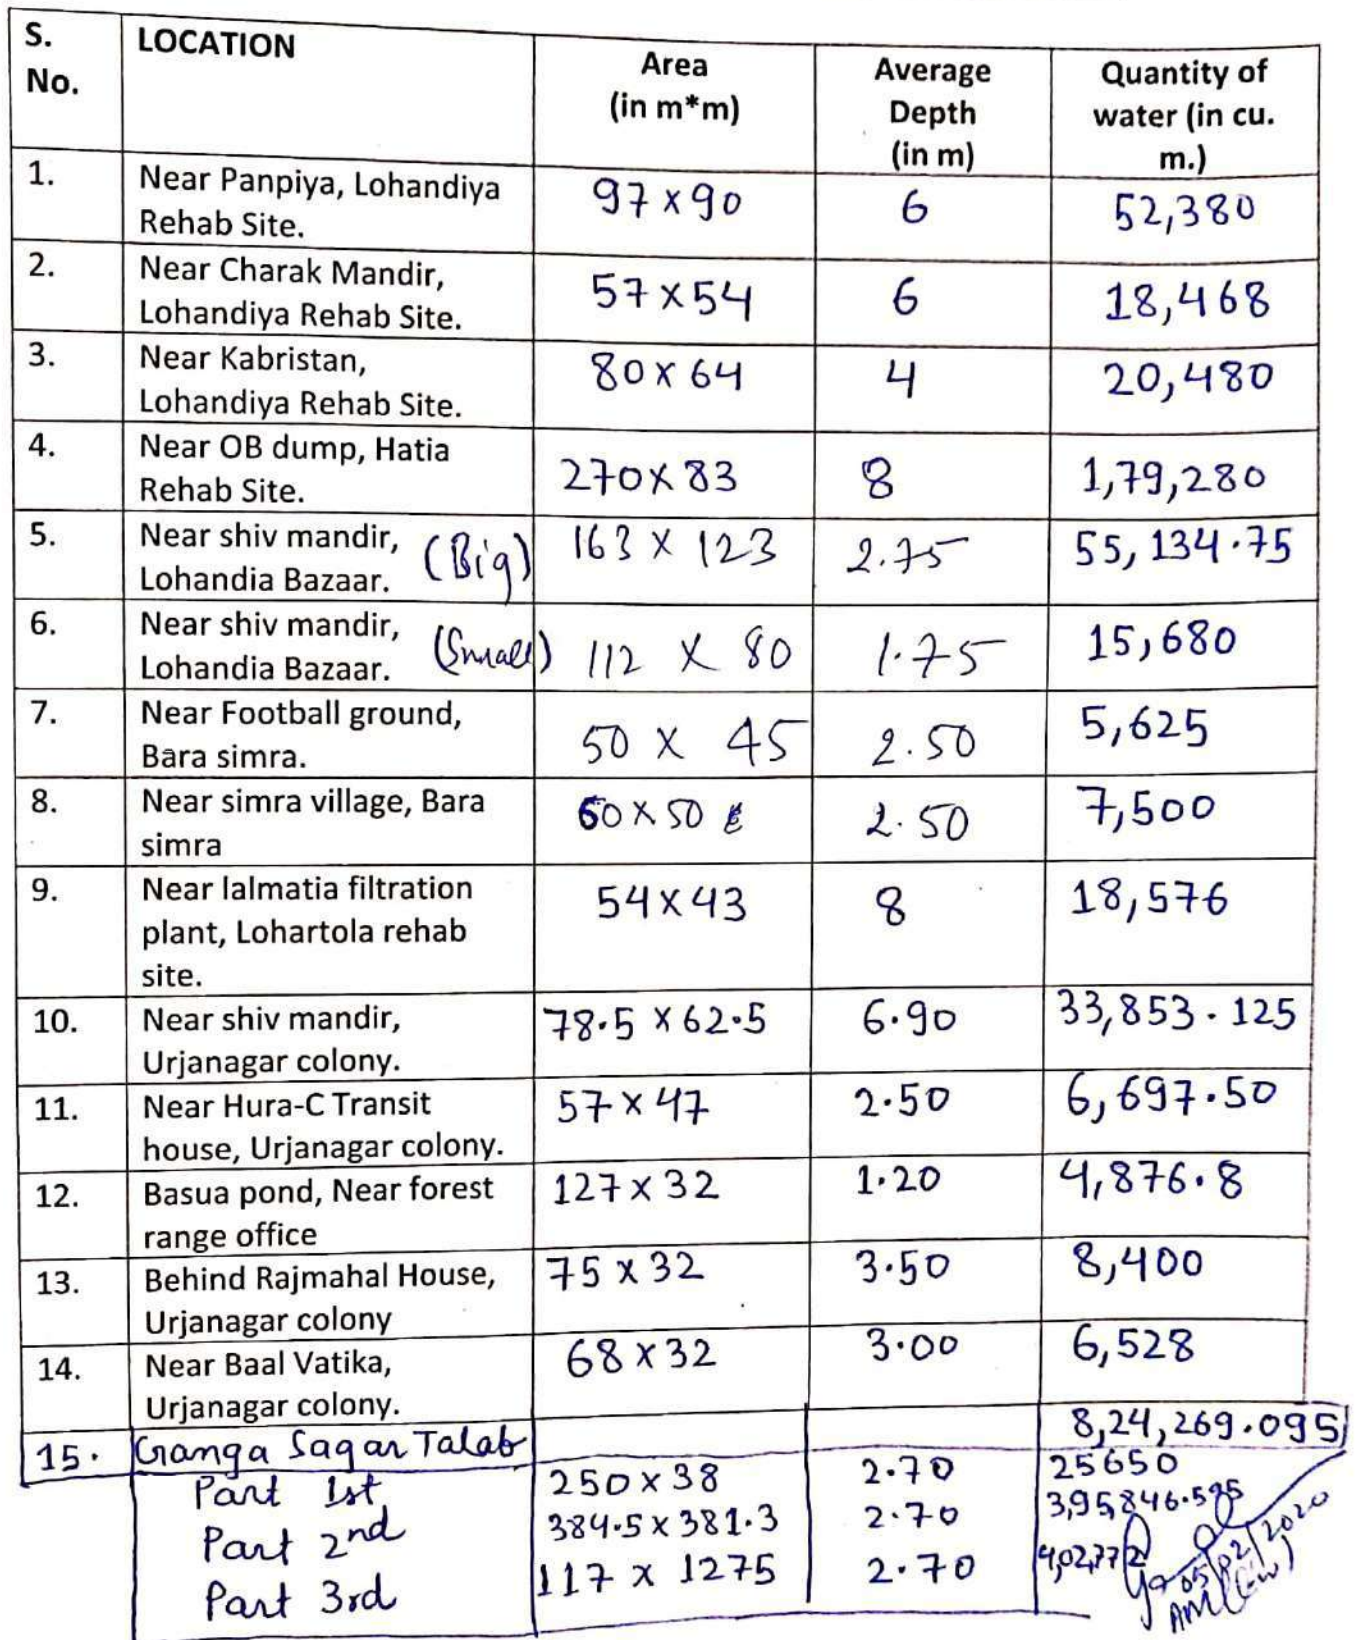 S. No. LOCATION Area (in m*m) Average Depth (in m) Quantity of water (in cu. m.)
1. Near Panpiya, Lohandiya Rehab Site. 97 x 90 6 52,380
2. Near Charak Mandir, Lohandiya Rehab Site. 57 x 54 6 18,468
3. Near Kabristan, Lohandiya Rehab Site. 80 x 64 4 20,480
4. Near OB dump, Hatia Rehab Site. 270 x 83 8 1,79,280
5. Near shiv mandir, Lohandia Bazaar. (Big) 163 x 123 2.75 55,134.75
6. Near shiv mandir, Lohandia Bazaar. (Small) 112 x 80 1.75 15,680
7. Near Football ground, Bara simra. 50 x 45 2.50 5,625
8. Near simra village, Bara simra 60 x 50 2.50 7,500
9. Near lalmatia filtration plant, Lohartola rehab site. 54 x 43 8 18,576
10. Near shiv mandir, Urjanagar colony. 78.5 x 62.5 6.90 33,853.125
11. Near Hura-C Transit house, Urjanagar colony. 57 x 47 2.50 6,697.50
12. Basua pond, Near forest range office 127 x 32 1.20 4,876.8
13. Behind Rajmahal House, Urjanagar colony 75 x 32 3.50 8,400
14. Near Baal Vatika, Urjanagar colony. 68 x 32 3.00 6,528
15. Ganga Sagar Talab 8,24,269.095
Part 1st 250 x 38 2.70 25650
Part 2nd 384.5 x 381.3 2.70 3,95,846.595
Part 3rd 117 x 1275 2.70 4,02,772
05/02/2020